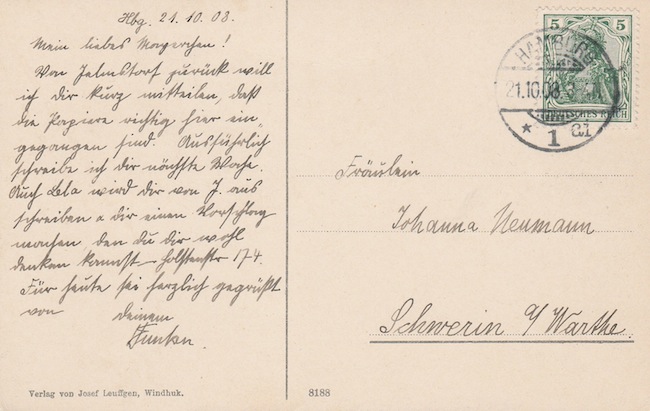 Hbg. 21.10.08.
Mein liebes
Von zurück will
ich dir kurz mitteilen, daß
die Papiere richtig hier ein-
gegangen sind. Ausführlich
schreibe ich dir nächste Woche.
Auch wird dir von J. aus
schreiben u dir einen Vorschlag
machen den du dir wohl
denken kannst. Holstenstr 174.
Für heute sei herzlich gegrüßt
von deinem
Verlag von Josef Leuffgen, Windhuk.
8188
5 5
DEUTSCHES REICH
HAMBURG
21.10.08.
* 1 
Fräulein
Johanna Neumann
Schwerin a/Warthe.